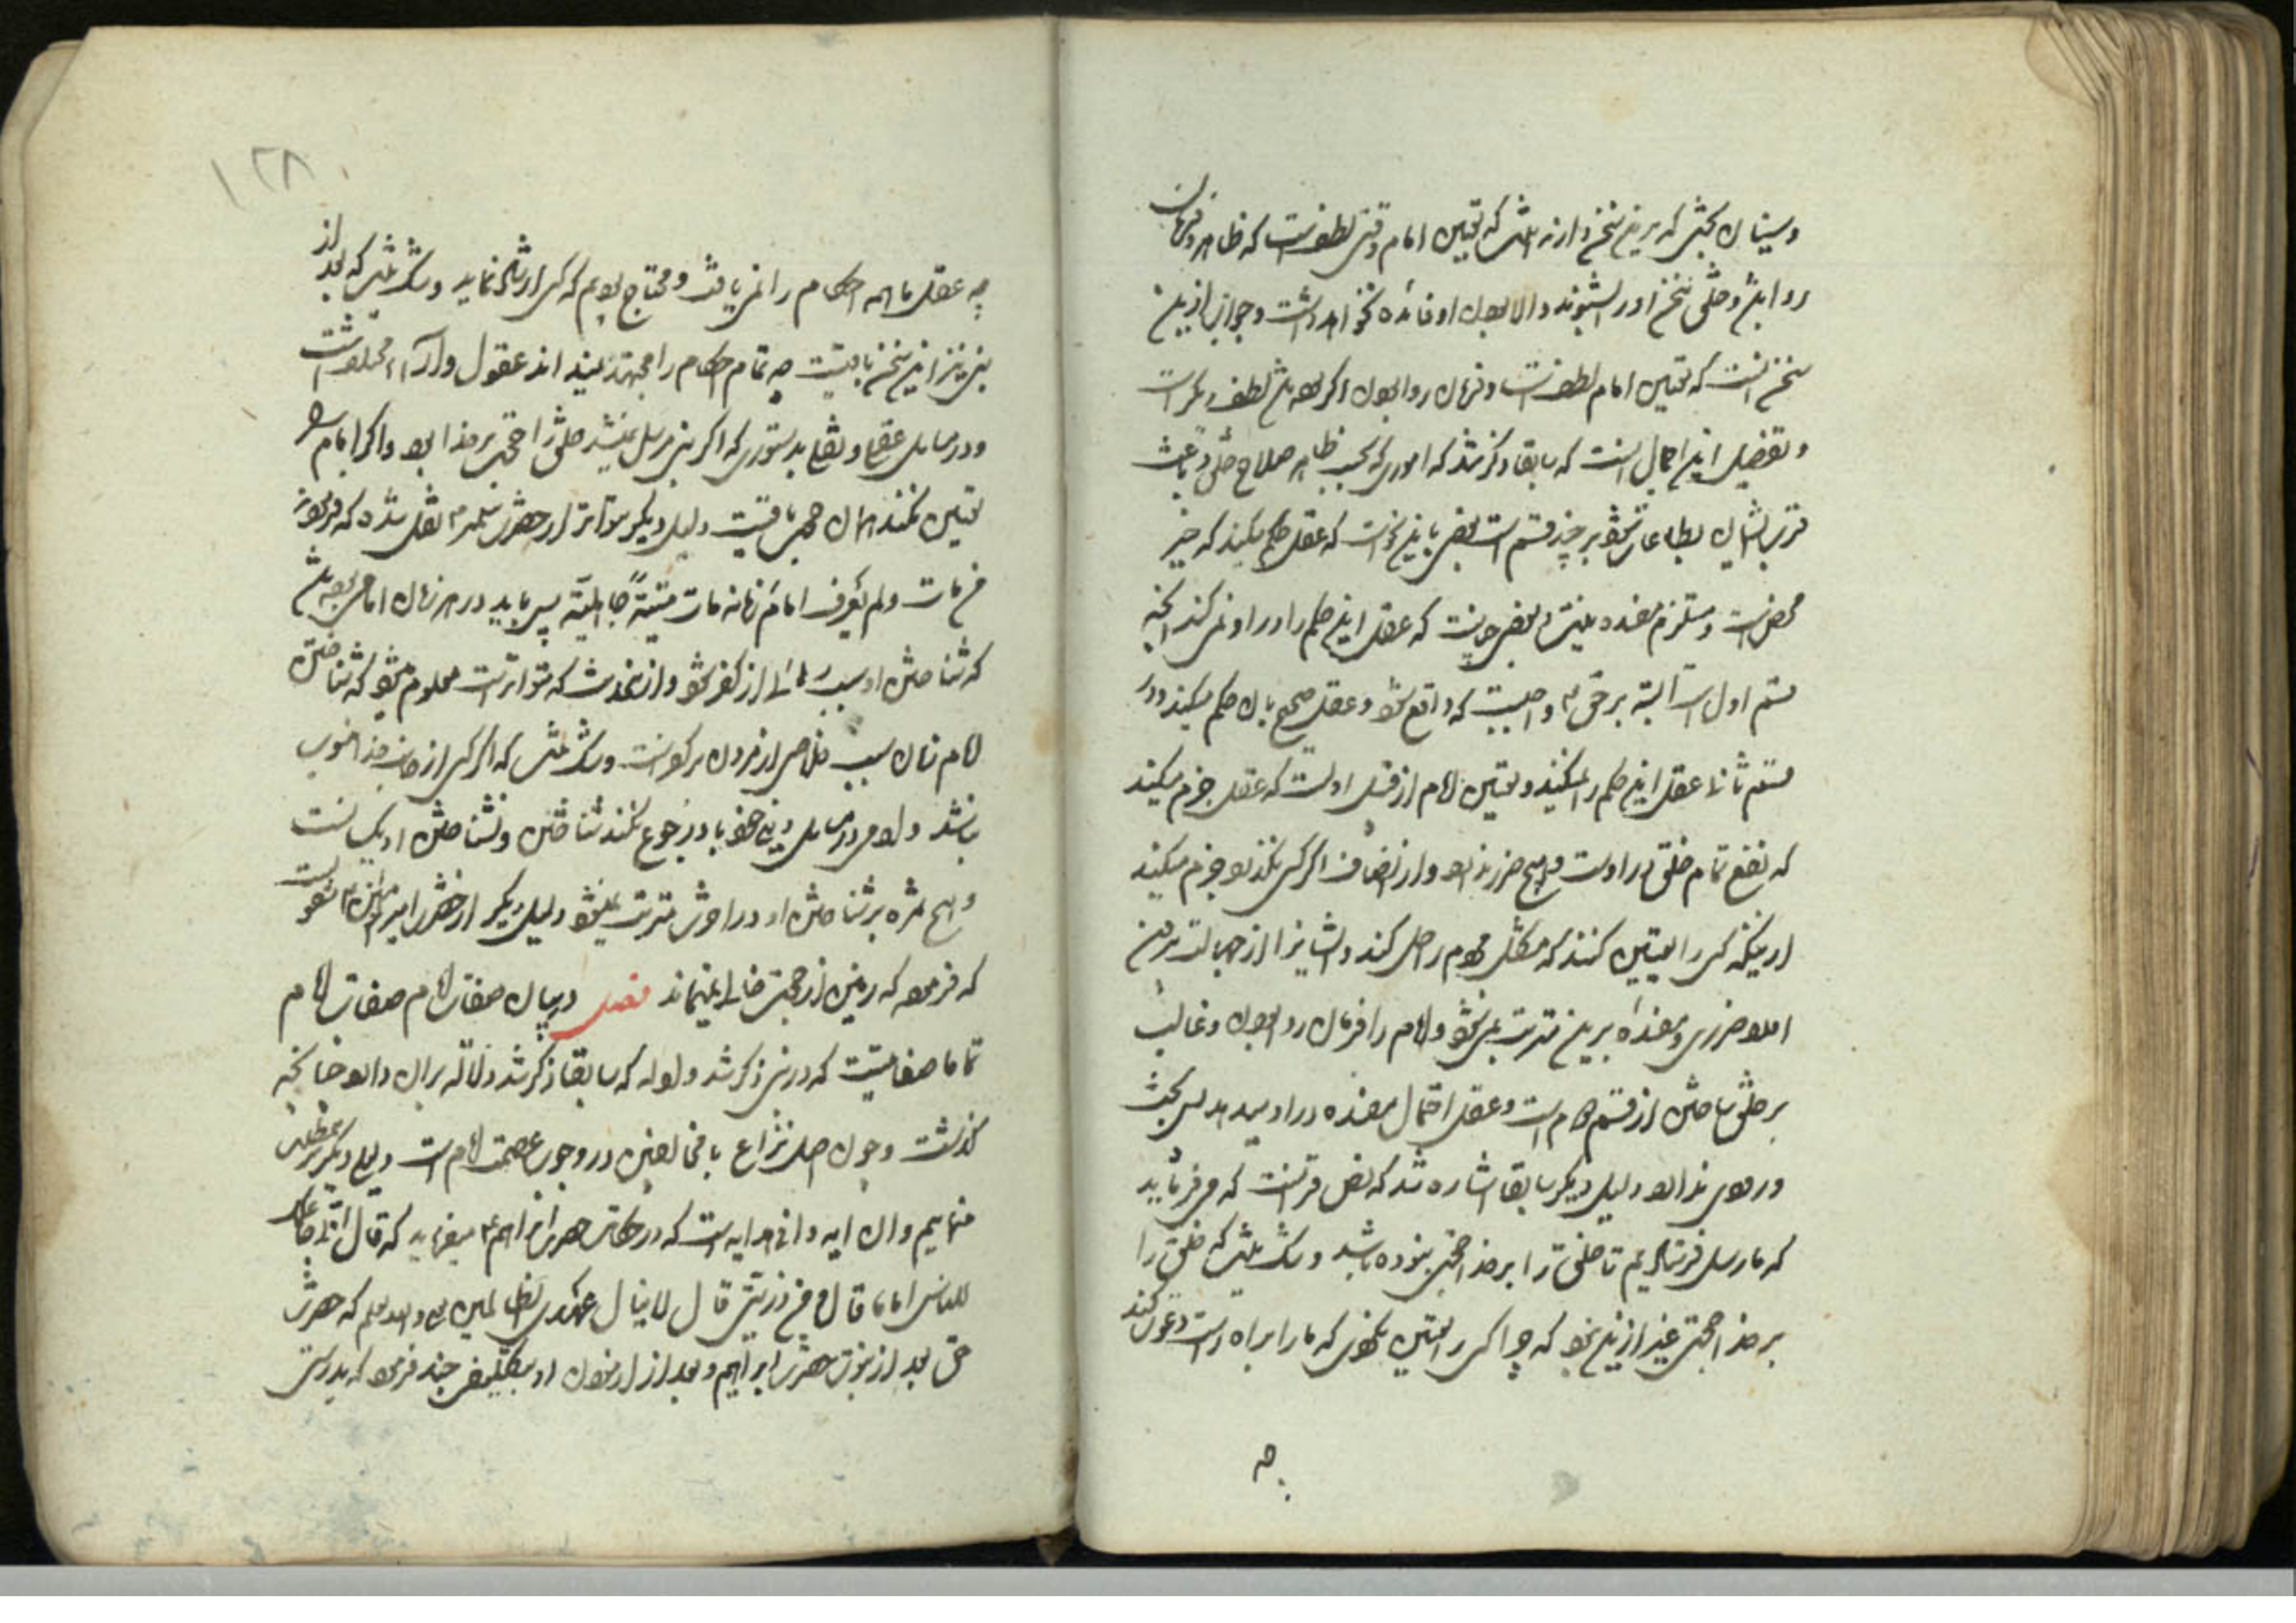 و سنیان بحثی که برین سخن دارند اینست که تعیین امام وقتی لطفست که ظاهر و فرمان
روا باشد و خلق سخن او را بشنوند و الا بودن او فائده نخواهد داشت و جواب ازین
سخن آنست که تعیین امام لطفست و فرمان روا بودن اگر بوده باشد لطف دیگرست
و تفصیل این اجمال آنست که سابقا ذکر شد که اموری که بحسب ظاهر صلاح خلق و باعث
قرب ایشان بطاعات شود بر چند قسم است بعضی باین نحوست که عقل حکم میکند که خیر
محض است و مستلزم مفسده نیست و بعضی چنانست که عقل این حکم را در او نمی کند آنچه
قسم اول است البته بر حق تعالی واجبست که واقع شود و عقل صحیح بآن حکم میکند و در
قسم ثانی عقل این حکم را نمیکند و تعیین امام از قسم اولست که عقل جزم میکند
که نفع تمام خلق در اوست و هیچ ضرر ندارد و از انصاف اگر کسی نگذرد جزم میکند
از اینکه کسی را تعیین کنند که مشکل مردم را حل کند و ایشان را از جهالت برهاند
اصلا ضرری و مفسده برین مترتب نمی شود و امام را فرمان روا بودن و غالب
بر خلق ساختن از قسم دوم است و عقل احتمال مفسده در او میدهد پس بحث
وردی ندارد دلیل دیگر سابقا اشاره شد که نص قرآنست که می فرماید
که ما رسل فرستادیم تا خلق را بر خدا حجتی نبوده باشد و شک نیست که خلق را
بر خدا حجتی غیر ازین نبود که چرا کسی را تعیین نکردی که ما را براه راست دعوت کند
چه
۱۲۸
چه عقل ما همه احکام را نمی یافت و محتاج بودیم که کسی ارشاد نماید و شک نیست که بعد از
پیغمبر نیز این سخن باقیست چه تمام احکام را مجتهد نمیداند عقول و آراء مختلفست
و در مسایل عقلی و نقلی بدستوری که اگر پیغمبر مرسل نمیشد خلق را حجتی بر خدا بود و اگر امام را
تعیین نکند همان حجت باقیست دلیل دیگر متواتر از حضرت پیغمبر نقل شده که فرموده
من مات ولم یعرف امام زمانه مات میتة جاهلیة پس باید در هر زمان امامی بوده باشد
که شناختن او سبب رهائی از کفر شود و ازین حدیث که متواترست معلوم میشود که شناختن
امام زمان سبب خلاصی از مردن بر کفرست و شک نیست که اگر کسی از جانب خدا منصوب
نباشد و مردم در مسایل دینی خود باو رجوع نکنند شناختن و نشناختن او یکیست
و هیچ ثمره بر شناختن او در آخرت مترتب نمیشود دلیل دیگر از حضرت امیر المؤمنین منقولست
که فرموده که زمین از حجت خالی نمیماند فصل در بیان صفات امام صفات امام
تمام صفاتیست که در نبی ذکر شد و ادله که سابقا ذکر شد دلالت بر آن دارد چنانچه
گذشت و چون اصل نزاع با مخالفین در وجوب عصمت امام است دلیل دیگر بر مطلب
مینمائیم و آن آیه وافی هدایه است که در حکایت حضرت ابراهیم میفرماید که قال انی جاعلک
للناس اماما قال و من ذریتی قال لا ینال عهدی الظالمین و الله اعلم که حضرت
حق بعد از نبوت حضرت ابراهیم و بعد از آزمودن او بتکلیف چند فرمود که بدرستی